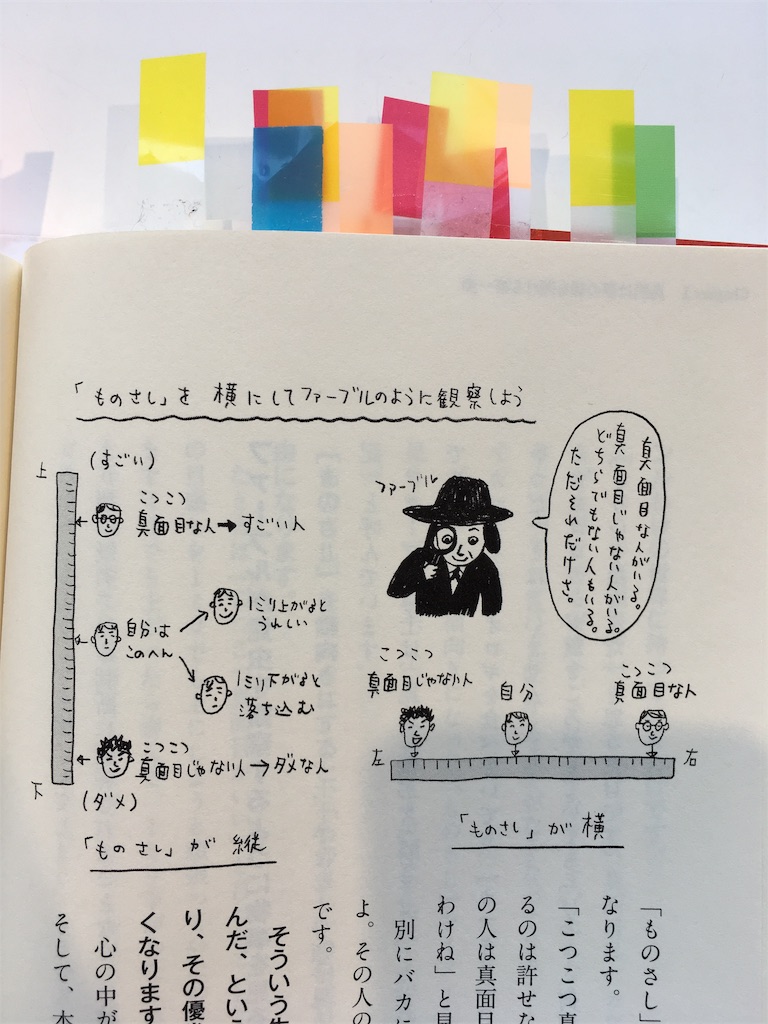 「ものさし」を 横にしてファーブルのように観察しよう
上
(すごい)
こつこつ
真面目な人→すごい人
自分は
このへん
1ミリ上がると
うれしい
1ミリ下がると
落ち込む
こつこつ
真面目じゃない人→ダメな人
下
(ダメ)
「ものさし」が 縦
ファーブル
真面目な人がいる。
真面目じゃない人がいる。
どちらでもない人もいる。
ただそれだけさ。
こつこつ
真面目じゃない人
自分
こつこつ
真面目な人
左
右
「ものさし」が 横
「ものさし」
なります。
「こつこつ真
るのは許せな
の人は真面目
わけね」と見
別にバカに
よ。その人の
です。
そういう生
んだ、とい
り、その優
くなります
心の中が
そして、本